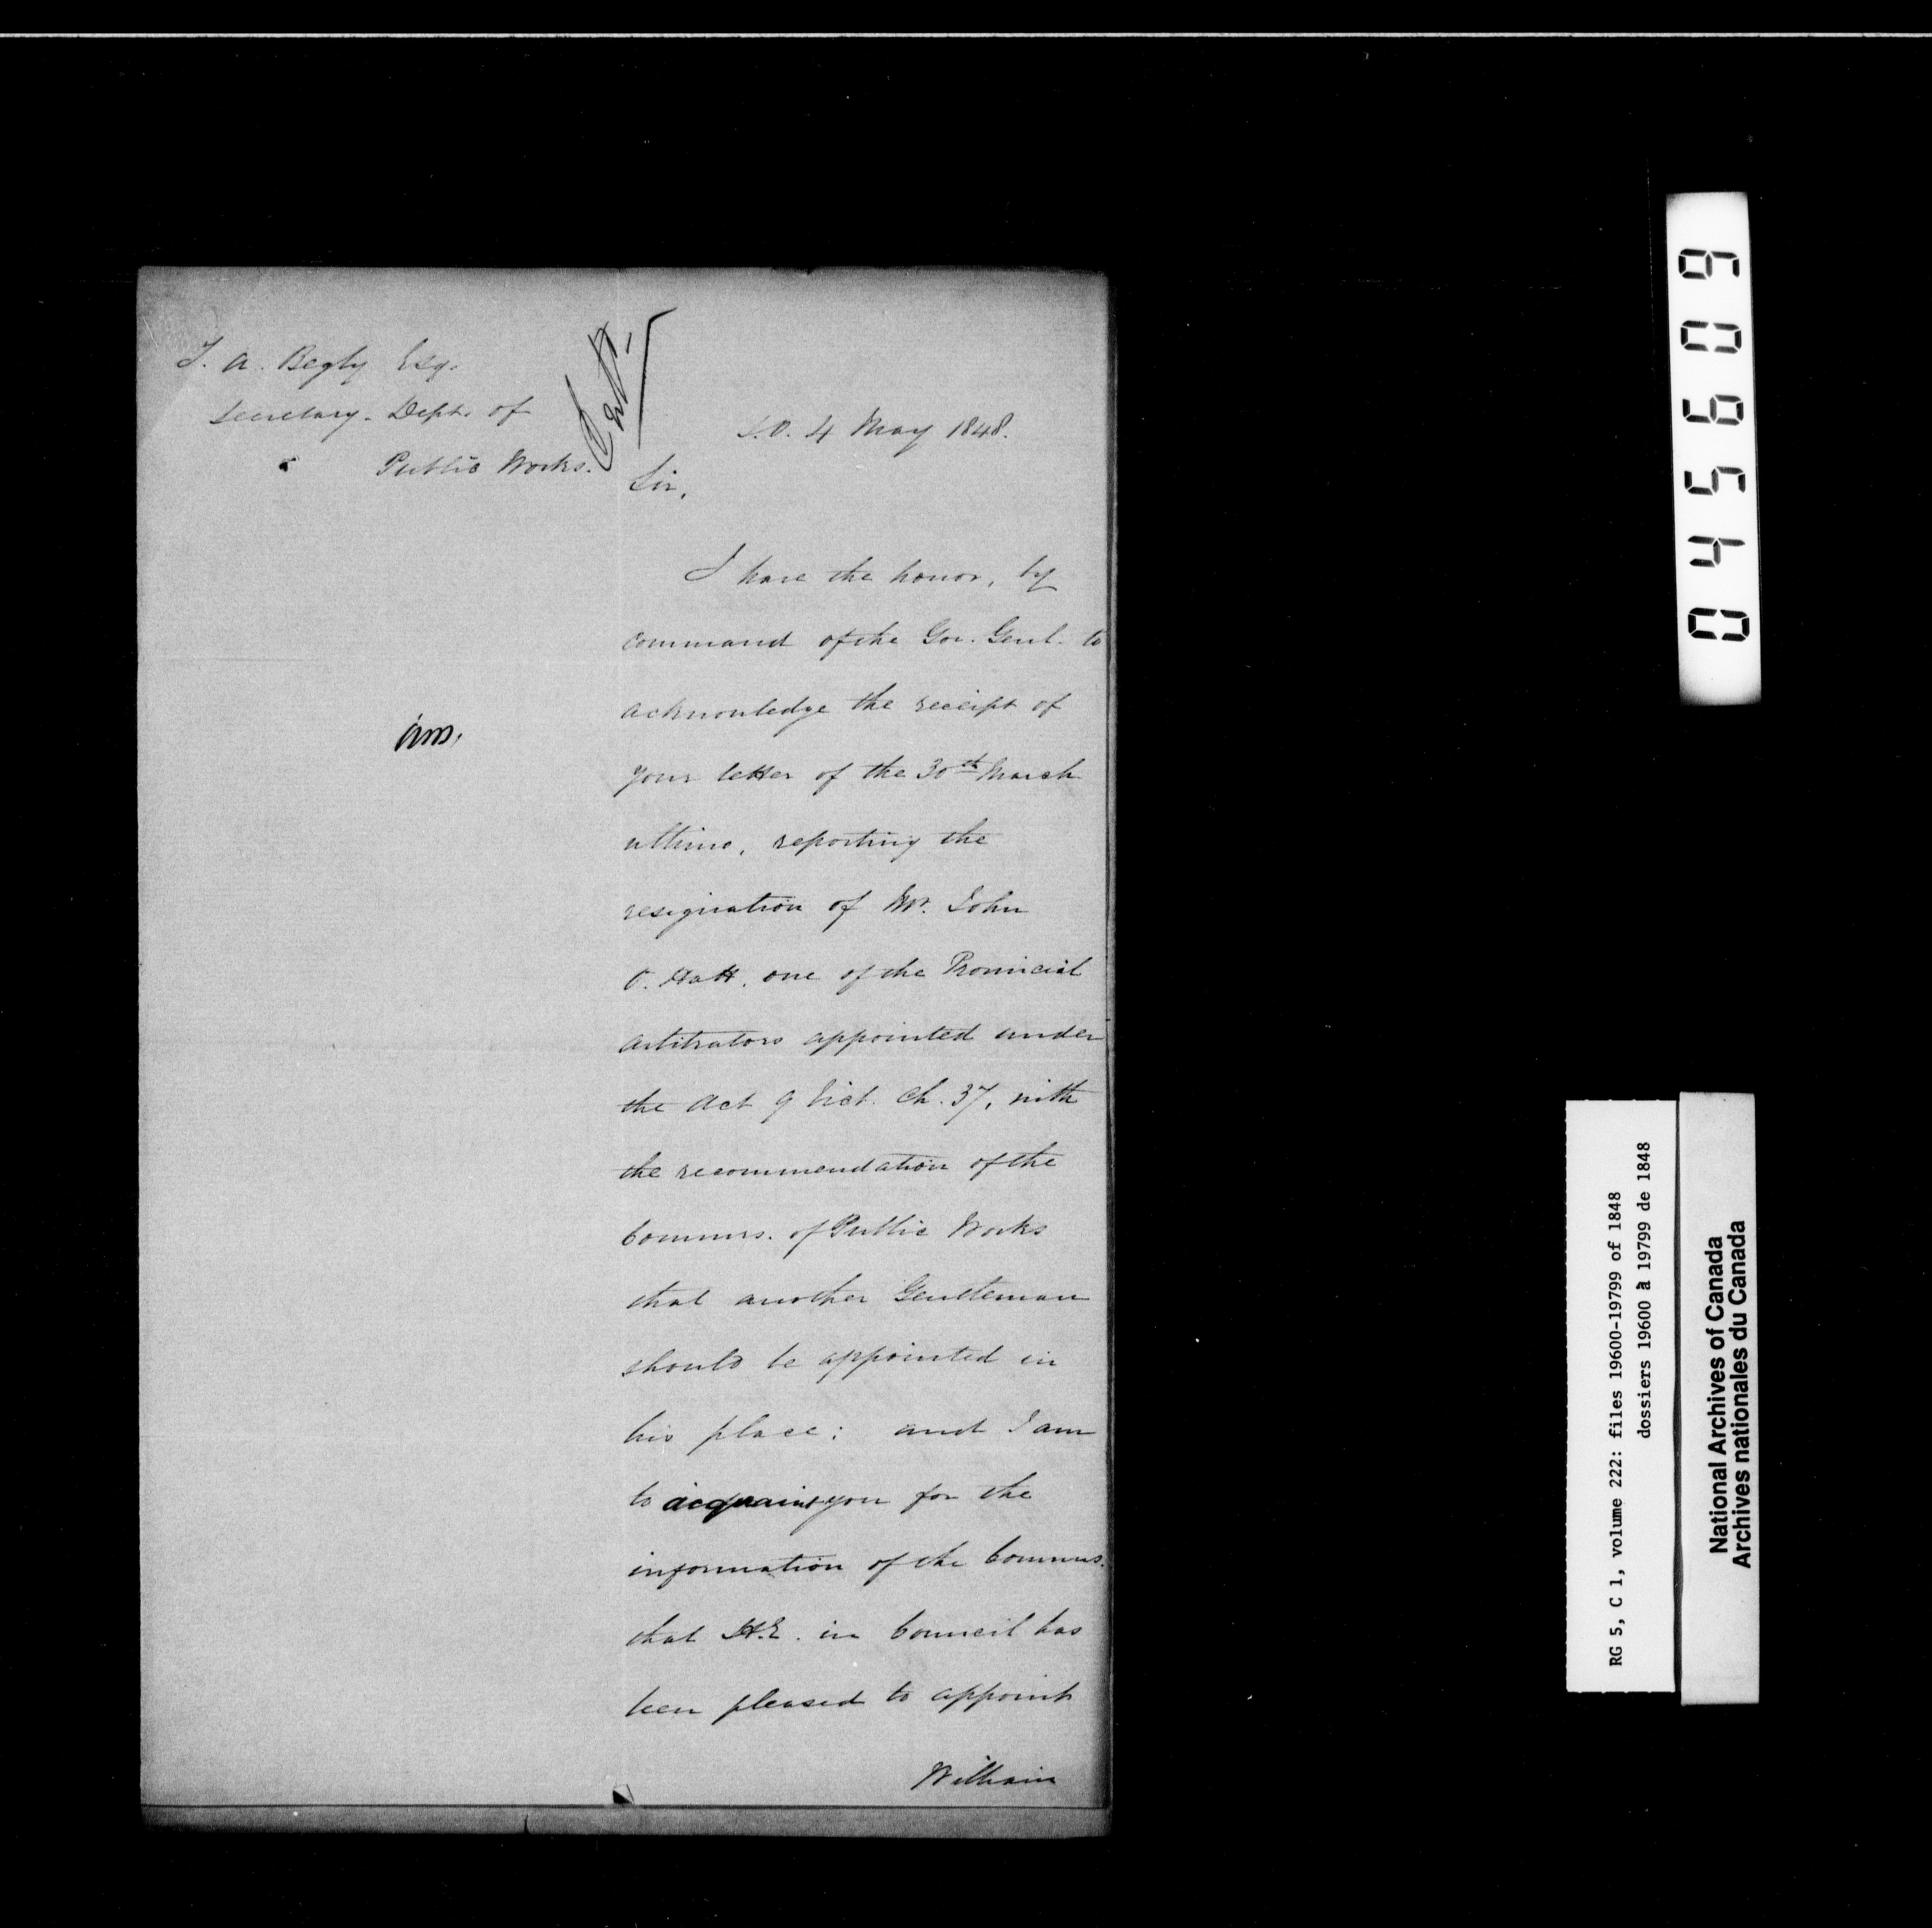 T. A. Begly Esq.
Secretary. Dept. of
Public Works.
S.O. 4 May 1848.
Sir,
I have the honor, by
command of the Gov. Genl. to
acknowledge the receipt of
your letter of the 30th March
ultimo, reporting the
resignation of Mr. John
O. Hatt, one of the Provincial
arbitrators appointed under
the Act 9 Vict. Ch. 37, with
the recommendation of the
Commrs. of Public Works
that another Gentleman
should be appointed in
his place; and I am
to acquaint you for the
information of the Commrs.
that H.E. in Council has
been pleased to appoint
William
045609
RG 5, C 1, volume 222: files 19600-19799 of 1848
dossiers 19600 à 19799 de 1848
National Archives of Canada
Archives nationales du Canada